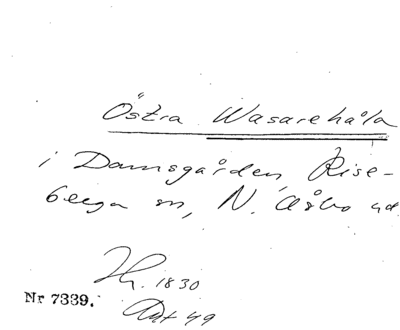 Östra Wasarehåla
i Damsgården, Rise-
berga sn, N. Åsbo hd.
Th. 1830
Nr 7339.
49